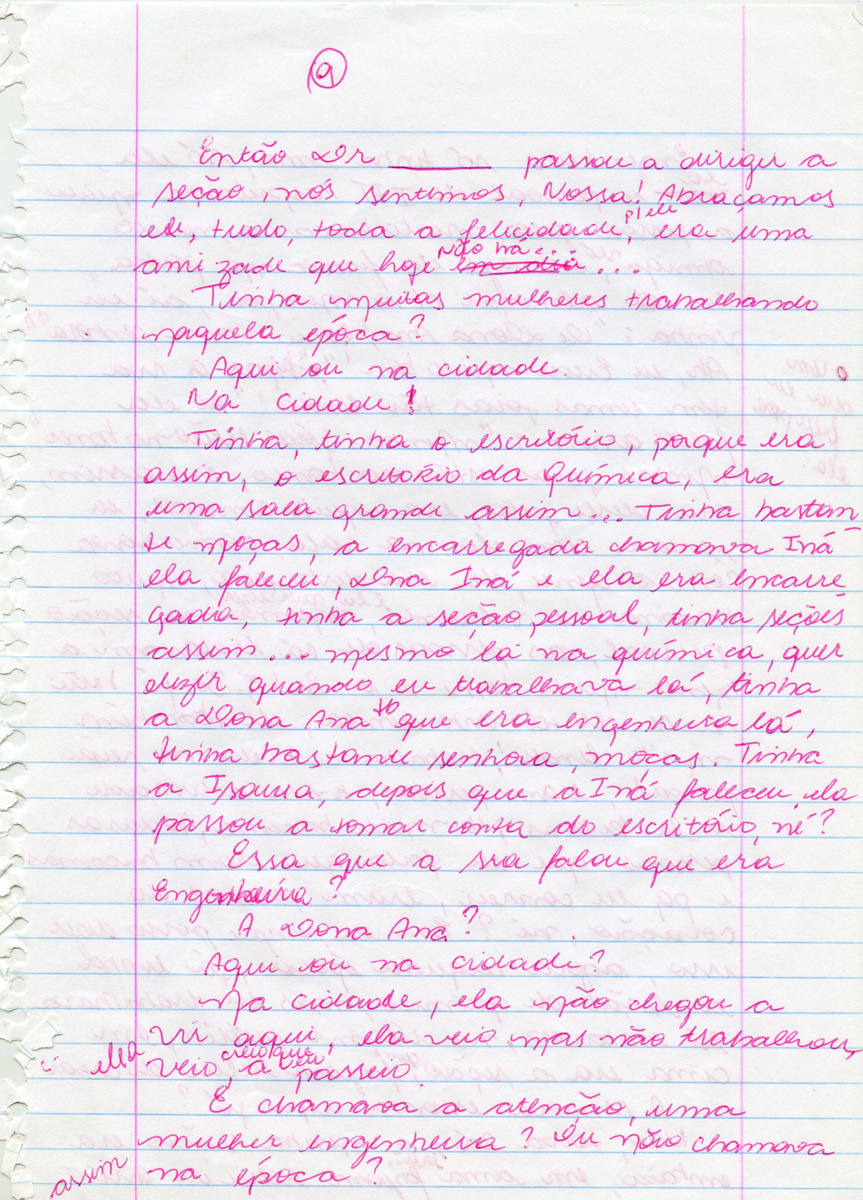 9
Então Dr ______ passou a dirigir a
seção, nós sentimos, Nossa! Abraçamos
ele, tudo, toda a felicidade p/ ele, era uma
amizade que hoje não há... em dia ...
Tinha muitas mulheres trabalhando
naquela época?
Aqui ou na cidade.
Na cidade!
Tinha, tinha o escritório, porque era
assim, o escritório da Química, era
uma sala grande assim... Tinha bastan-
te moças, a encarregada chamava Iná
ela faleceu, Dona Iná e ela era encarre
gada, tinha a seção pessoal, tinha seções
assim... mesmo lá na química, quer
dizer quando eu trabalhava lá, tinha
a Dona Ana tb que era engenheira lá,
tinha bastante senhora, moças. Tinha
a Isaura, depois que a Iná faleceu ela
passou a tomar conta do escritório, né?
Essa que a sra falou que era
Engenheira?
A Dona Ana?
Aqui ou na cidade?
Na cidade, ela não chegou a
vir aqui, ela veio mas não trabalhou,
ela veio, creio que a passeio.
E chamava a atenção, uma
mulher engenheira? Ou não chamava
assim na época?